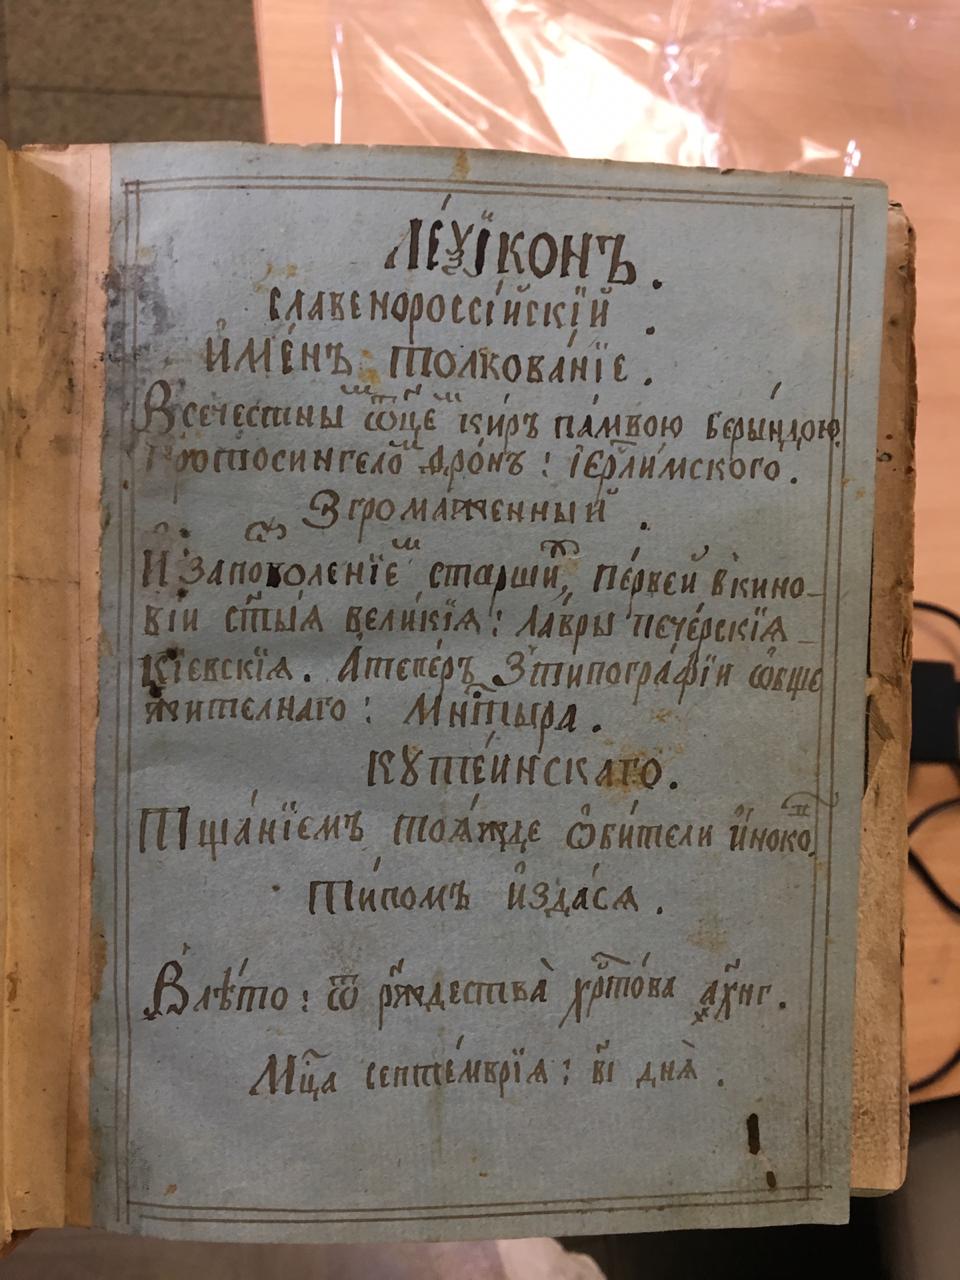 Ле́ѯїконъ.
славенороссі́йскїй.
и҆ме́нъ толкова́нїе.
Всечестны ѿце кѵ́ръ па́мвою беры́ндою
протосингело дро́нъ: іерⷭ҇ли́мского.
Згромаженный.
И҆ заповоленїе старши, пе́рвей вкино-
вїи ст҃ы́ѧ вели́кїѧ: ла́вры пече́рскїѧ
кїевскїѧ. А҆тепе́ръ Зтипогра́фїи ѡ҆бще
жителнаго: Мнⷭ҇тырѧ.
Кꙋте́инскаго.
Тща́нїемъ тоѧ́жде ѡ҆би́тели и҆́ноко.
ти́помъ и҆зда́сѧ.
В лѣ́то: ѿ рж҃дества̀ хрⷭ҇то́ва ҂ах҃нг.
Мцⷭ҇а септе́мврїѧ: в҃і днѧ̀.